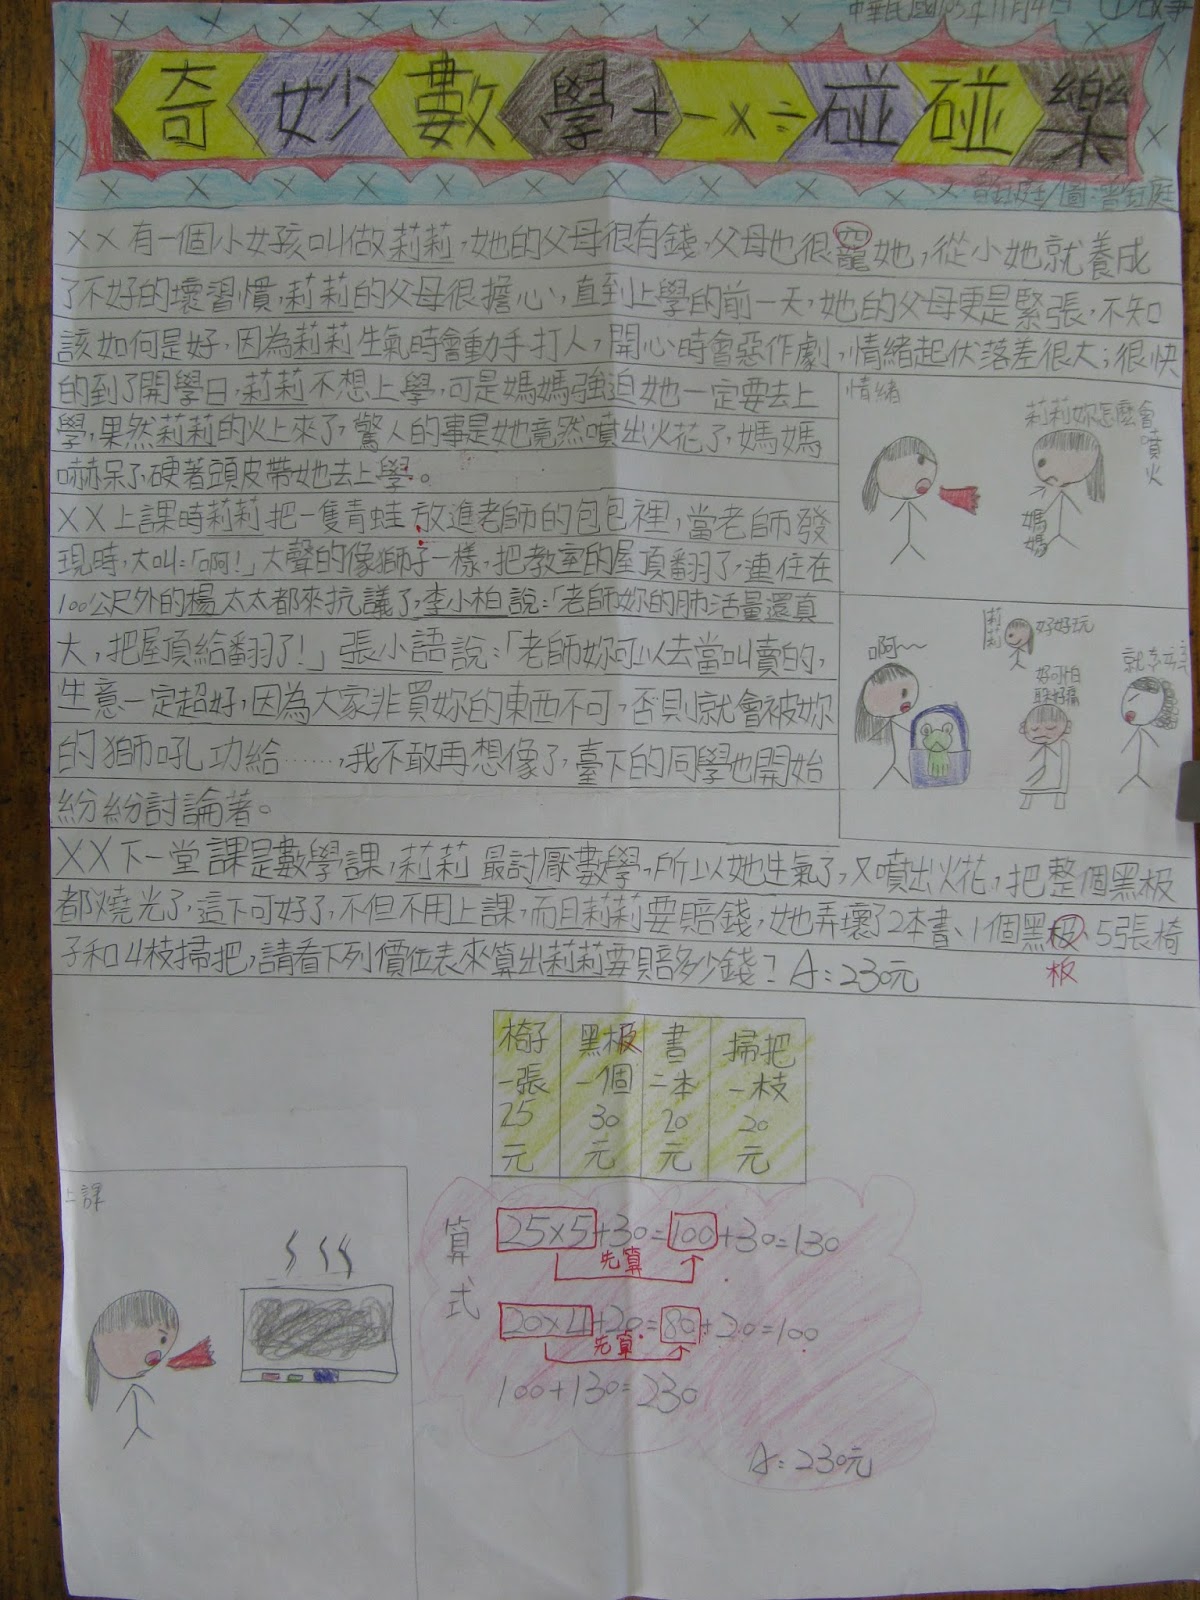 中華民國103年11月4日
奇妙數學+-×÷碰碰樂
圖:曾鈺庭
××有一個小女孩叫做莉莉,她的父母很有錢,父母也很寵她,從小她就養成
了不好的壞習慣,莉莉的父母很擔心,直到上學的前一天,她的父母更是緊張,不知
該如何是好,因為莉莉生氣時會動手打人,開心時會惡作劇,情緒起伏落差很大;很快
的到了開學日,莉莉不想上學,可是媽媽強迫她一定要去上
學,果然莉莉的火上來了,驚人的事是她竟然噴出火花了,媽媽
嚇赫呆了硬著頭皮帶她去上學。
情緒
莉莉妳怎麼會噴火
媽媽
××上課時莉莉把一隻青蛙放進老師的包包裡,當老師發
現時,大叫:「啊!」大聲的像獅子一樣,把教室的屋頂翻了,連住在
100公尺外的楊太太都來抗議了,李小柏說:「老師妳的肺活量還真
大,把屋頂給翻了!」張小語說:「老師妳可以去當叫賣的,
生意一定超好,因為大家非買妳的東西不可,否則就會被妳
的獅吼功給……,我不敢再想像了,臺下的同學也開始
紛紛討論著。
啊~~
莉莉
好好玩
好可怕
××下一堂課是數學課,莉莉最討厭數學,所以她生氣了,又噴出火花,把整個黑极
都燒光了,這下可好了,不但不用上課,而且莉莉要賠錢,她弄壞了2本書、1個黑极、5張椅
板
子和4枝掃把,請看下列價位表來算出莉莉要賠多少錢?A:230元
椅子 黑极 書 掃把
一張 一個 二本 一枝
25 30 20 20
元 元 元 元
上課
算式
25×5+30=100+30=130
先算
20×4+20=80+20=100
先算
100+130=230
A:230元